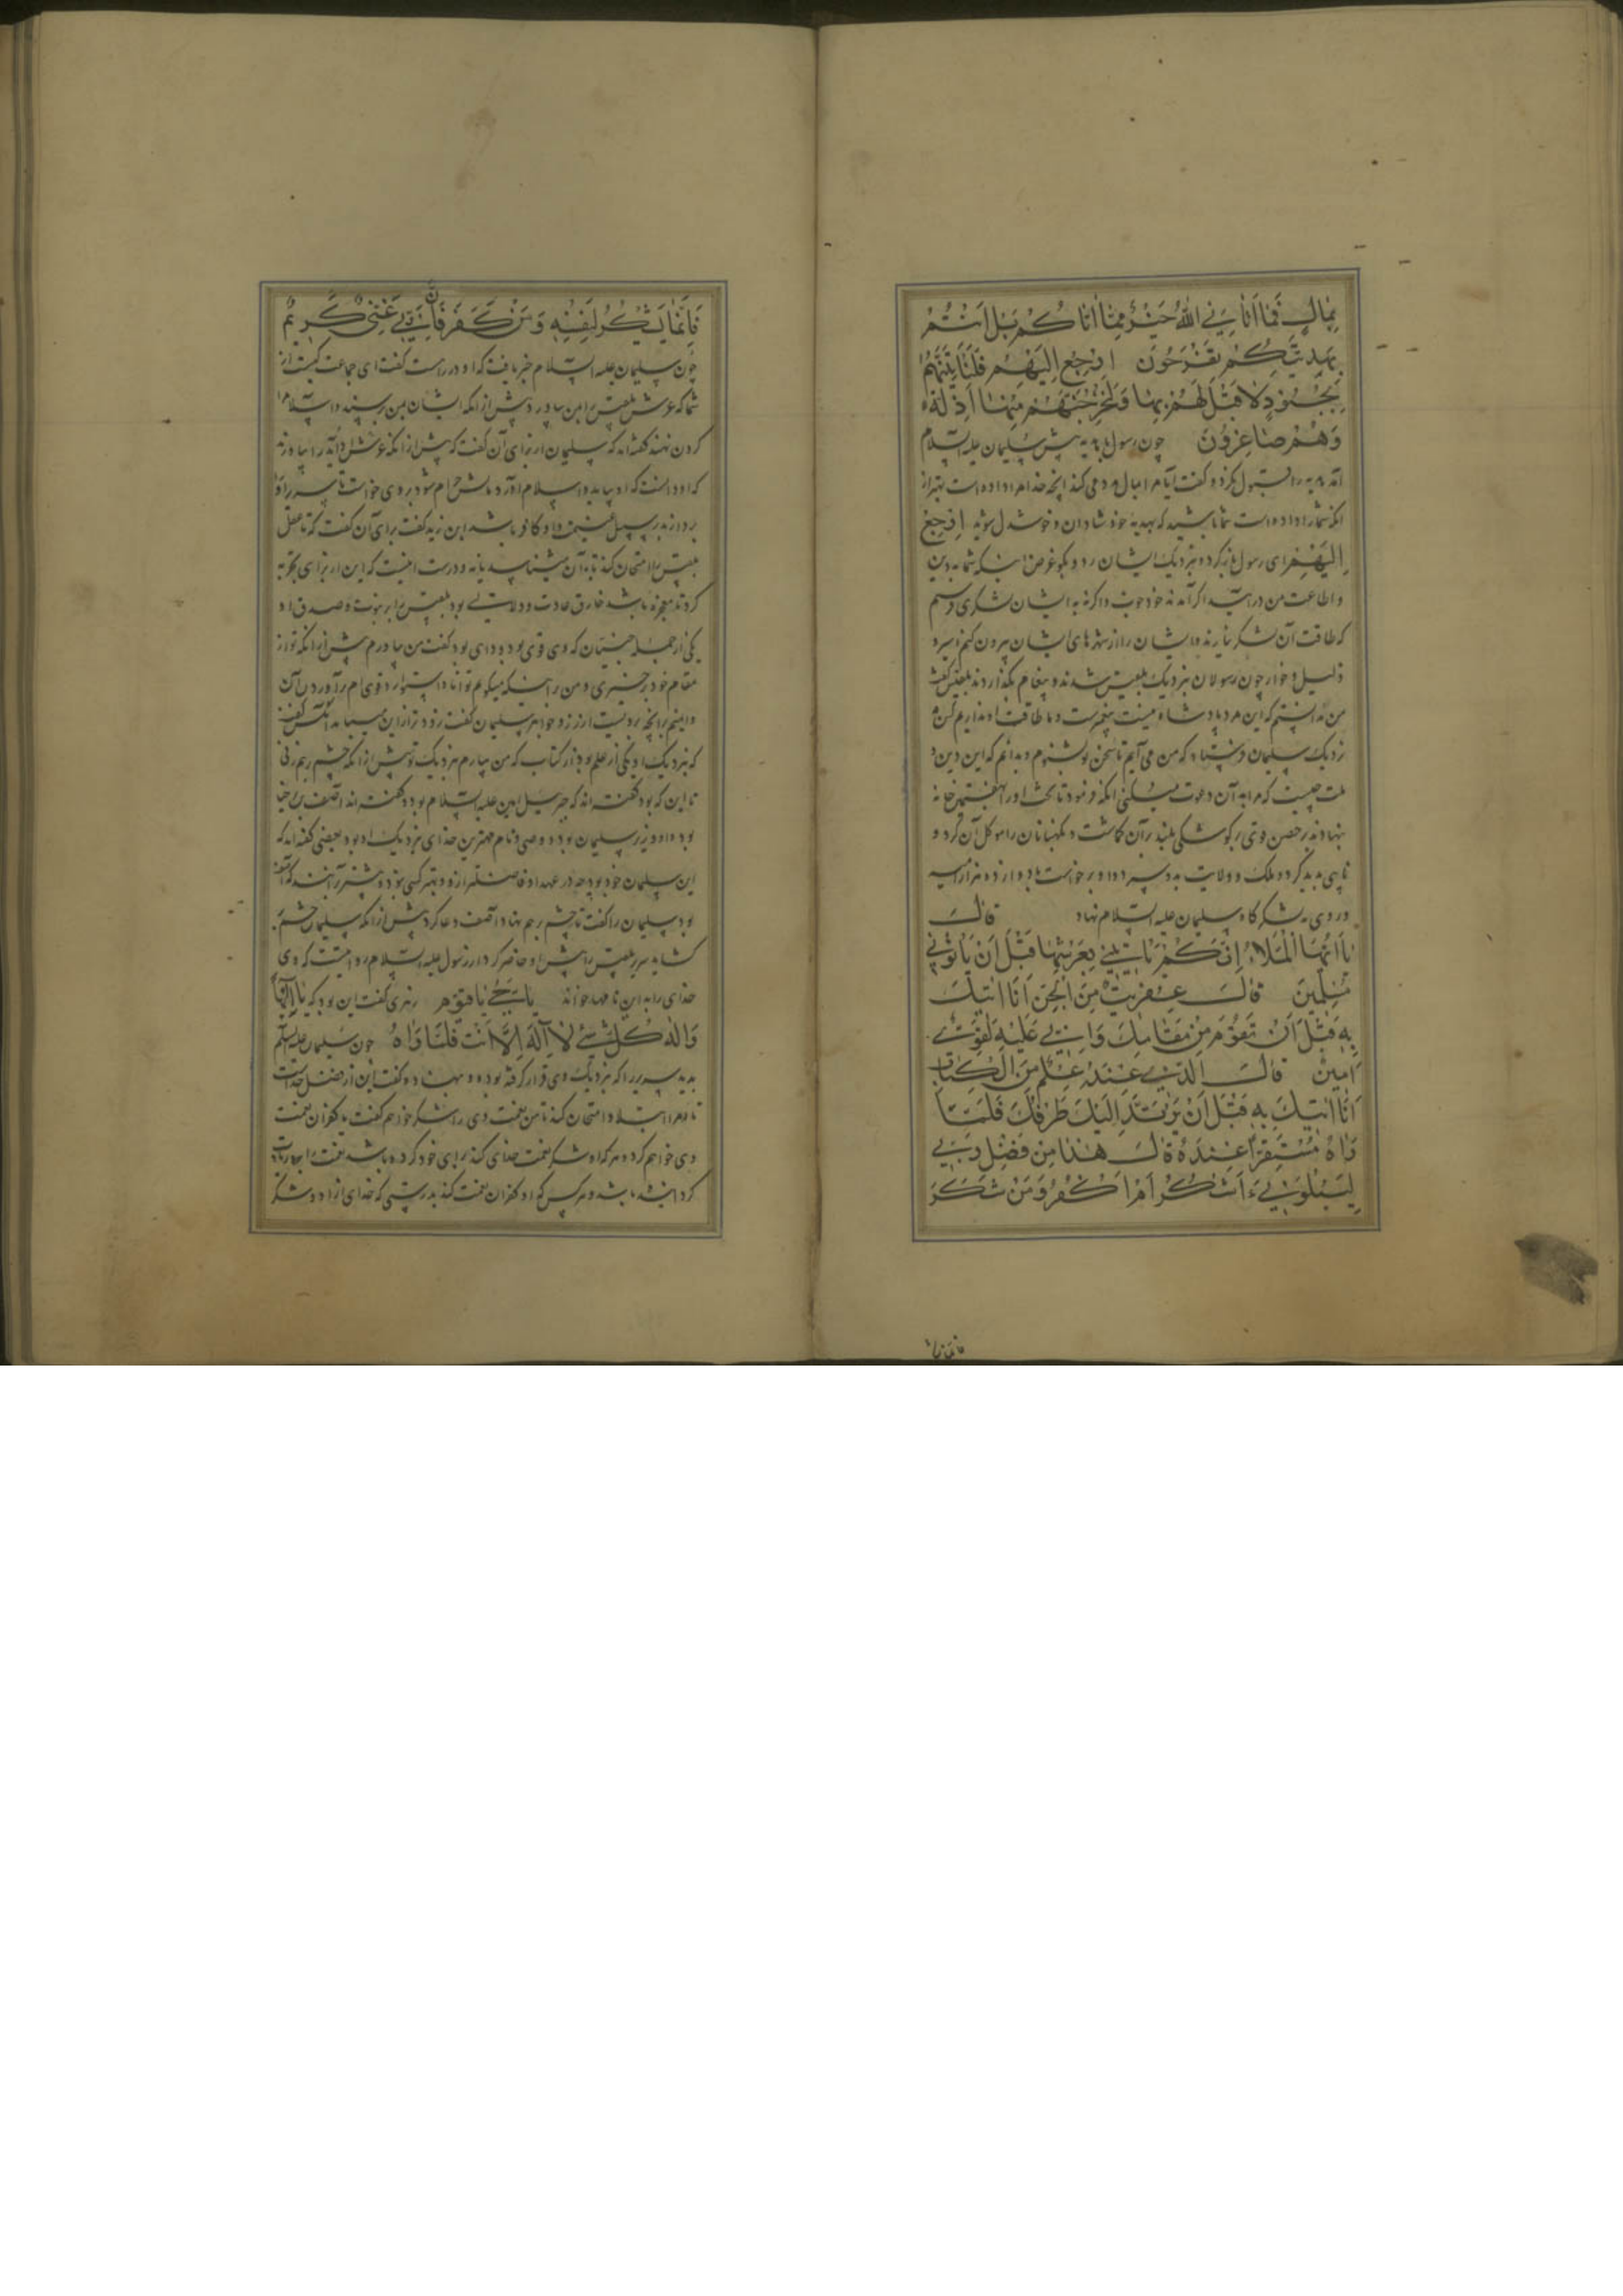 بِمَالٍ فَمَا اٰتَانِيَ اللّٰهُ خَيْرٌ مِمَّا اٰتَاكُمْ بَلْ اَنْتُمْ
بِهَدِيَّتِكُمْ تَفْرَحُونَ اِرْجِعْ اِلَيْهِمْ فَلَنَأْتِيَنَّهُمْ
بِجُنُودٍ لَا قِبَلَ لَهُمْ بِهَا وَلَنُخْرِجَنَّهُمْ مِنْهَا اَذِلَّةً
وَهُمْ صَاغِرُونَ چون رسول با هدیه پیش سلیمان علیه السلام
آمد هدیه رد قبول نکرد و گفت آیا مرا بمال مدد می کنید آنچه خدا مرا داده است بهتر از
آنکه شما را داده است شما باشید که بهدیه خود شادان و خوشدل شوید اِرْجِعْ
اِلَيْهِمْ ای رسول باز گرد و بنزدیک ایشان رو و بگو غرض اینکه شما بدین
و اطاعت من در آیید اگر آمدند خود خوب و اگر نه به ایشان لشکری فرستم
که طاقت آن لشکر نیارند و ایشان را از شهرهای ایشان بیرون کنم اسیر و
ذلیل و خوار چون رسولان بنزدیک بلقیس شدند و پیغام بگذاردند بلقیس گفت
من دانستم که این مرد پادشاه نیست پیغمبرست و ما طاقت او نداریم کس
نزدیک سلیمان فرستاد که من می آیم تا سخن تو بشنوم و بدانم که این دین و
ملت چیست که مرا به آن دعوت میکنی آنگه فرمود تا تخت او را در هفتمین خانه
بنهادند در حصن وی بر کوشکی بلند بر آن گماشت و نگهبانان را موکل آن کرد و
نایبی پدید کرد و ملک و ولایت بدو سپرد و او برخاست با دوازده هزار اسیر
و روی به لشکرگاه سلیمان علیه السلام نهاد قَالَ
يَا اَيُّهَا الْمَلَاءُ اَيُّكُمْ يَأْتِينِي بِعَرْشِهَا قَبْلَ اَنْ يَأْتُونِي
مُسْلِمِينَ قَالَ عِفْرِيتٌ مِنَ الْجِنِّ اَنَا اٰتِيكَ
بِهِ قَبْلَ اَنْ تَقُومَ مِنْ مَقَامِكَ وَاِنِّي عَلَيْهِ لَقَوِيٌّ
اَمِينٌ قَالَ الَّذِي عِنْدَهُ عِلْمٌ مِنَ الْكِتَابِ
اَنَا اٰتِيكَ بِهِ قَبْلَ اَنْ يَرْتَدَّ اِلَيْكَ طَرْفُكَ فَلَمَّا
رَاٰهُ مُسْتَقِرًّا عِنْدَهُ قَالَ هٰذَا مِنْ فَضْلِ رَبِّي
لِيَبْلُوَنِي ءَاَشْكُرُ اَمْ اَكْفُرُ وَمَنْ شَكَرَ
فانما
فَاِنَّمَا يَشْكُرُ لِنَفْسِهِ وَمَنْ كَفَرَ فَاِنَّ رَبِّي غَنِيٌّ كَرِيمٌ
چون سلیمان علیه السلام خبر یافت که او در راه است گفت ای جماعت کیست از
شما که عرش بلقیس را بمن بیاورد پیش از آنکه ایشان بمن رسند و اسلام را
گردن نهند گفته اند که سلیمان از برای آن گفت که پیش از آنکه عرش او آید را بیاورند
که او دانست که او بیاید و اسلام آورد مالش حرام شود بروی خواست تا سریر او را
بردارند بر سبیل غنیمت و او کافر باشد ابن زید گفت برای آن گفت که تا عقل
بلقیس را امتحان کند تا به آن میشناسد یا نه و درست اینست که این از برای تجربه
کرد تا معجزه باشد خارق عادت و دلالتی بود بلقیس را بر نبوت و صدق او
یکی از جمله جنیان که وی قوی بود و دای بود گفت من بیاورم پیش از آنکه تو از
مقام خود برخیزی و من را بدینکه میگویم توانا و استوار و قوی ام بر آوردن آن
و امینم بر آنچه بر ویست از زر و جواهر سلیمان گفت زودتر از این میباید آنکس گفت
که بنزدیک او یکی از علم بود از کتاب که من بیارم بنزدیک تو پیش از آنکه چشم برهم زنی
تا این که بود گفته اند که جبرئیل امین علیه السلام بود و گفته اند آصف برخیا
بود و او وزیر سلیمان بود و وصی و نام مهترین خدای بنزدیک او بود بعضی گفته اند که
این سلیمان خود بود چه در عهد او فاضلتر از او و بهتر کسی نبود و بیشتر بر آنند که آصف
بود سلیمان را گفت تا چشم برهم نهاد آصف دعا کرد پیش از آنکه سلیمان چشم
گشاید سریر بلقیس را پیش او حاضر کرد و از رسول علیه السلام روایتست که وی
خدای را به این نامها خواند يَا حَيُّ يَا قَيُّومُ زهری گفت این بود که يَا اِلٰهَنَا
وَاِلٰهَ كُلِّ شَيْءٍ لَا اِلٰهَ اِلَّا اَنْتَ فَلَمَّا رَاٰهُ چون سلیمان علیه السلام
بدید سریر را که بنزدیک وی قرار گرفته بود و بنهاده گفت این از فضل خداست
تا مرا ابتلا و امتحان کند تا من نعمت وی را شکر خواهم گفت یا کفران نعمت
وی خواهم کرد و هر که او شکر نعمت خدای کند برای خود کرده باشد نعمت را
گردانیده باشد و هر کس که او کفران نعمت کند بدرستی که خدای از او و شکر